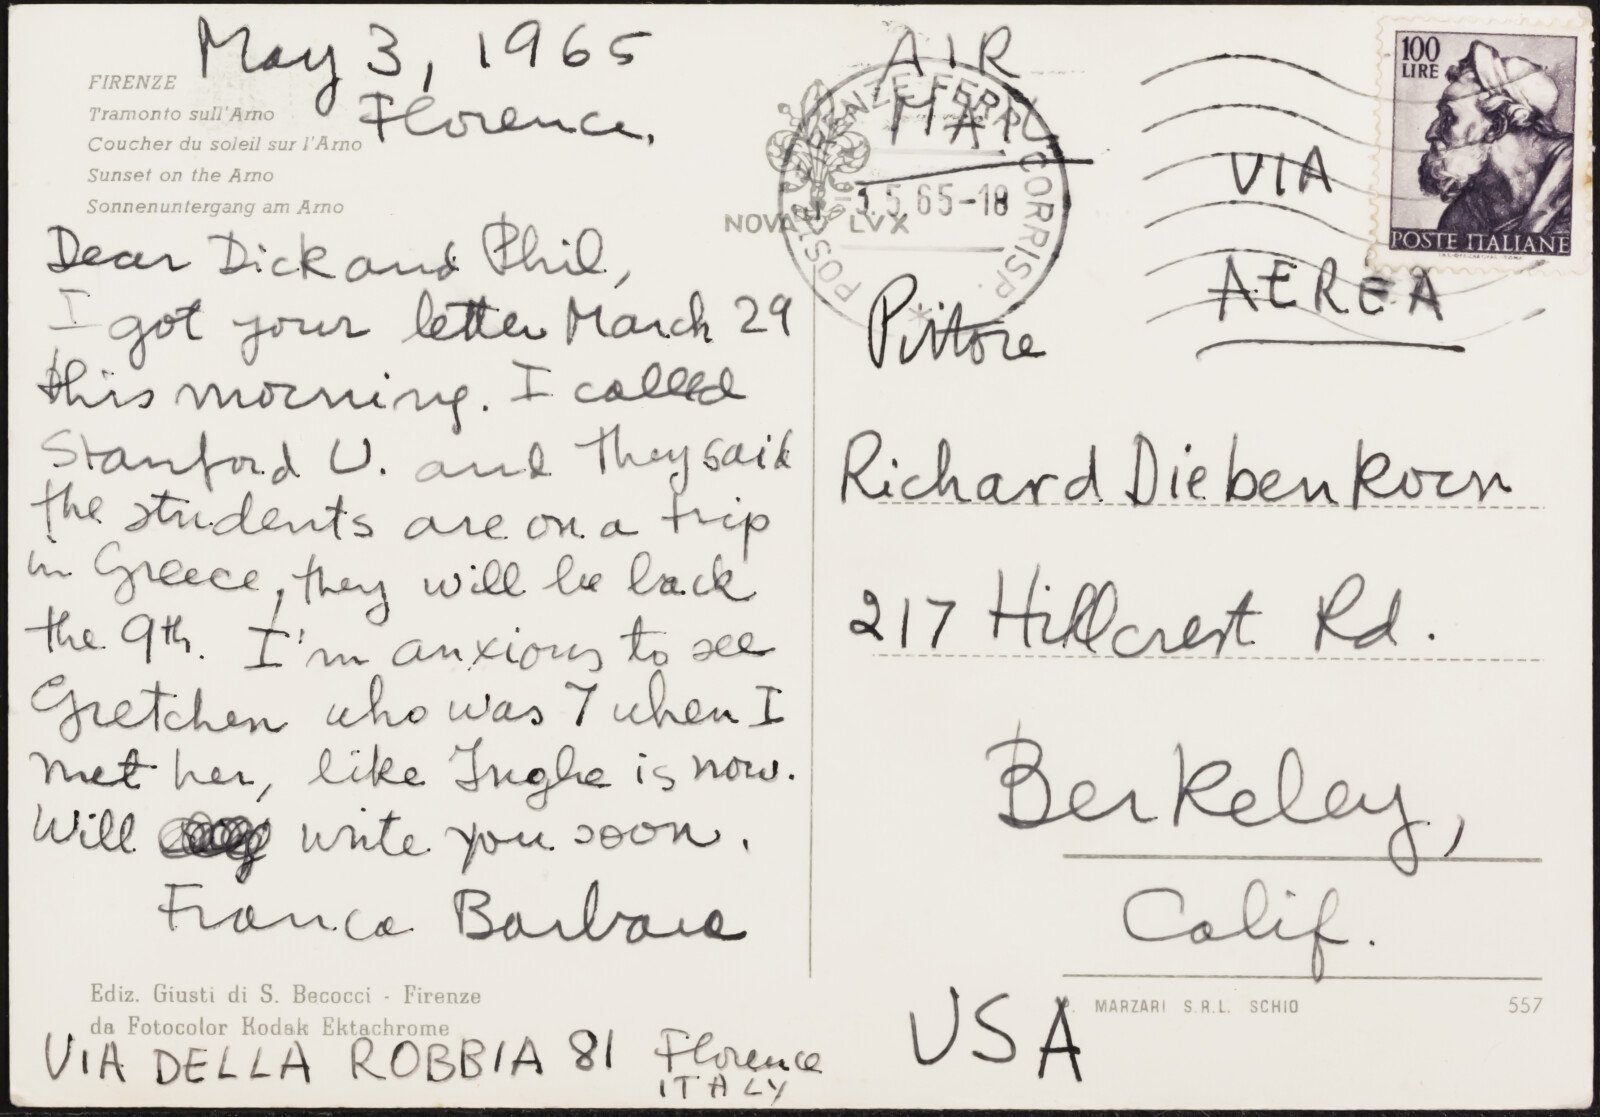 May 3, 1965
Florence.
FIRENZE
Tramonto sull'Arno
Coucher du soleil sur l'Arno
Sunset on the Arno
Sonnenuntergang am Arno
Dear Dick and Phil,
I got your letter March 29
this morning. I called
Stanford U. and they said
the students are on a trip
in Greece, they will be back
the 9th. I'm anxious to see
Gretchen who was 7 when I
met her, like Inghe is now.
Will write you soon.
Franca Barbara
Ediz. Giusti di S. Becocci - Firenze
da Fotocolor Kodak Ektachrome
VIA DELLA ROBBIA 81 Florence
ITALY
AIR
MAIL
NOVA LVX
5.65-18
CORRISP.
POSTE
VIA
AEREA
100
LIRE
POSTE ITALIANE
Pittore
Richard Diebenkorn
217 Hillcrest Rd.
Berkeley,
Calif.
USA
MARZARI S.R.L. SCHIO
557